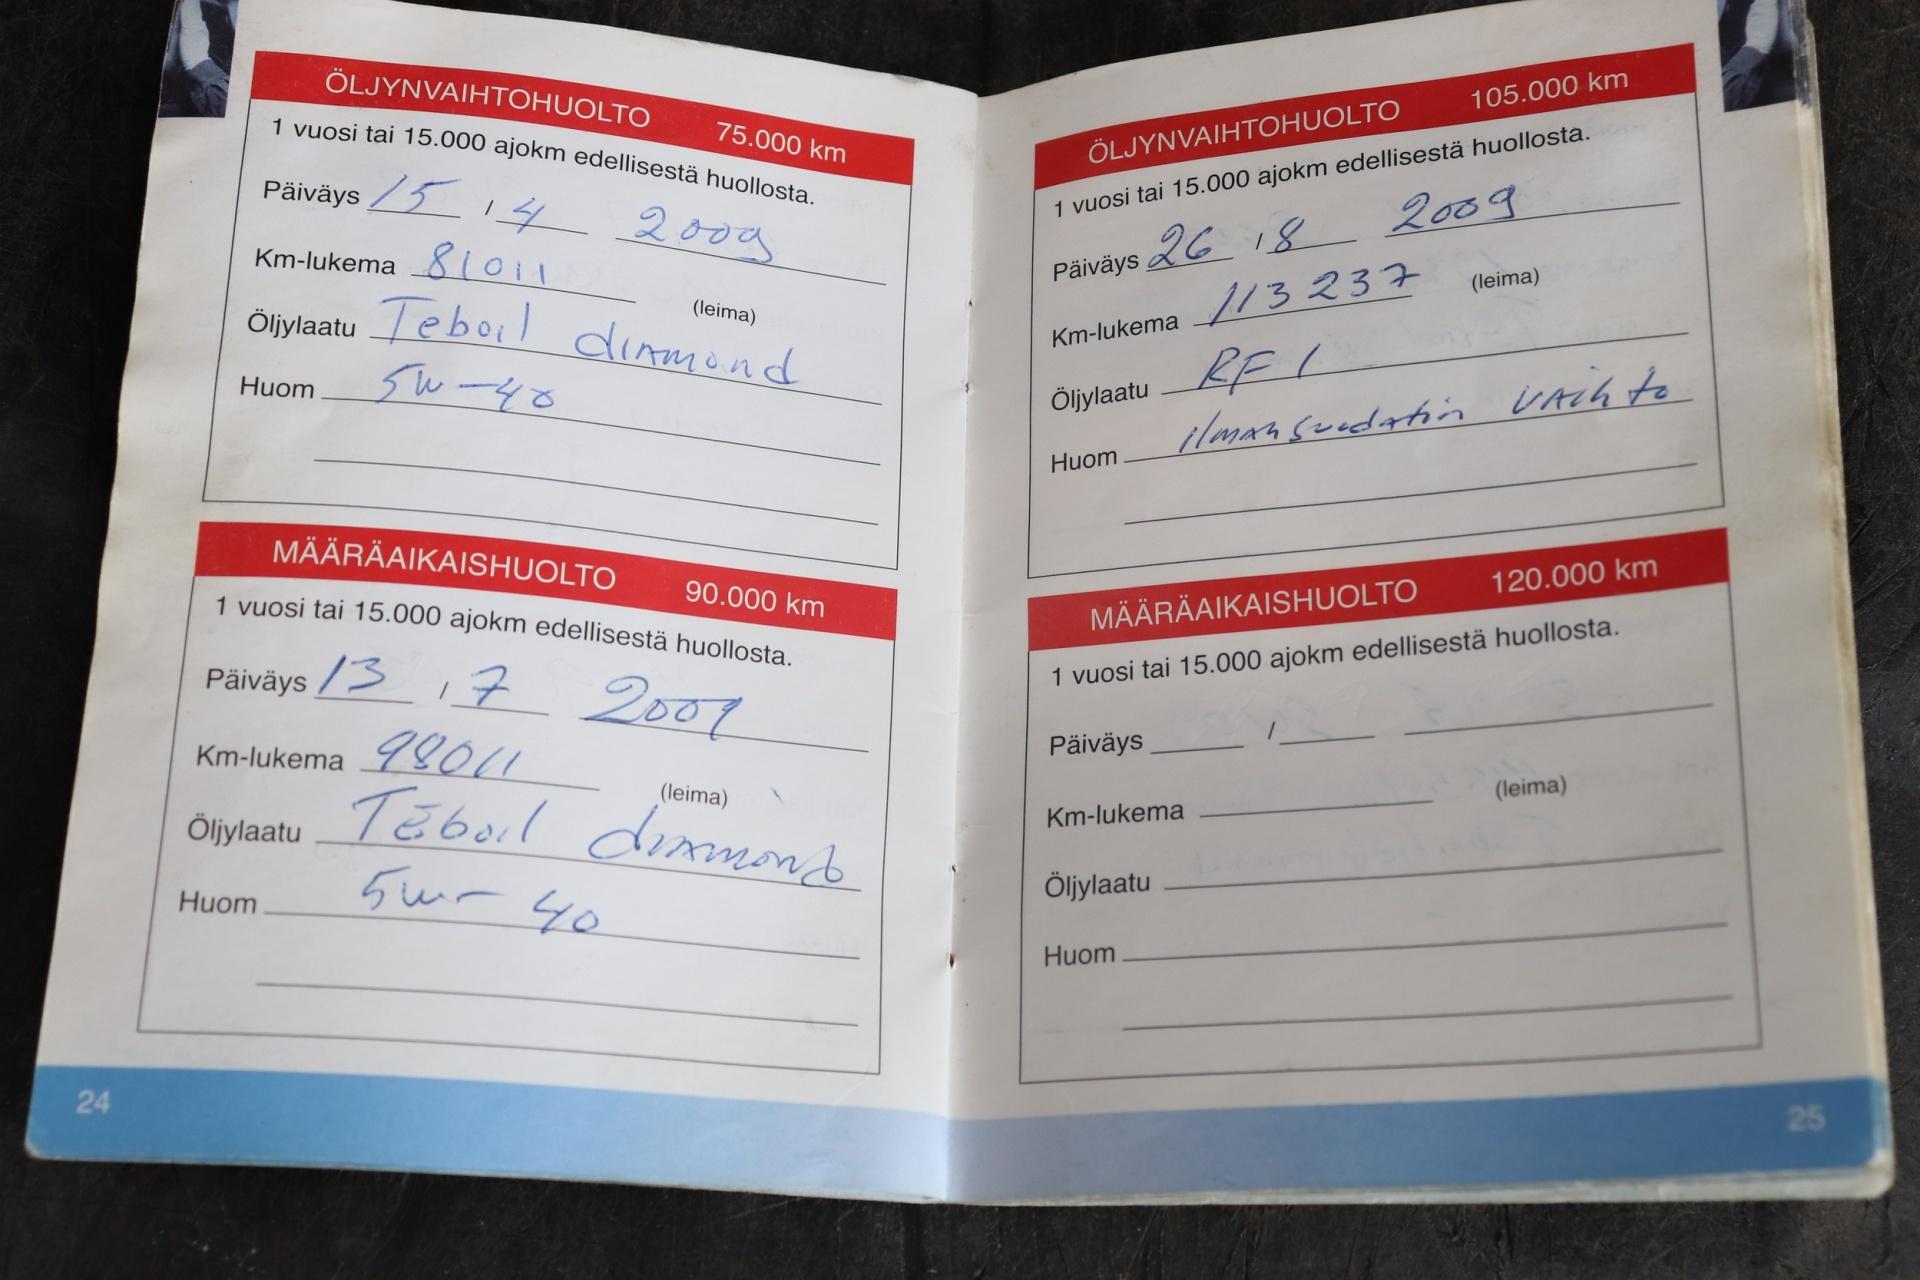 ÖLJYNVAIHTOHUOLTO 75.000 km
1 vuosi tai 15.000 ajokm edellisestä huollosta.
Päiväys 15 / 4 2009
Km-lukema 81011
(leima)
Öljylaatu Teboil diamond
Huom 5W-40
MÄÄRÄAIKAISHUOLTO 90.000 km
1 vuosi tai 15.000 ajokm edellisestä huollosta.
Päiväys 13 / 7 2009
Km-lukema 98011
(leima)
Öljylaatu Teboil diamond
Huom 5w-40
24
ÖLJYNVAIHTOHUOLTO 105.000 km
1 vuosi tai 15.000 ajokm edellisestä huollosta.
Päiväys 26 / 8 2009
Km-lukema 113237
(leima)
Öljylaatu RF 1
Huom ilmansuodatin vaihto
MÄÄRÄAIKAISHUOLTO 120.000 km
1 vuosi tai 15.000 ajokm edellisestä huollosta.
Päiväys /
Km-lukema
(leima)
Öljylaatu
Huom
25